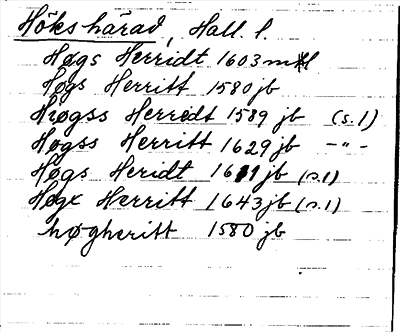 Höks härad, Hall. l.
Høgs Herridt 1603 mtl
Høgs Herritt 1580 jb
Høgss Herredt 1589 jb (s. 1)
Høgss Herritt 1629 jb -"-
Høgs Heridt 1611 jb (s. 1)
Høgx Herritt 1643 jb (s. 1)
høgheritt 1580 jb